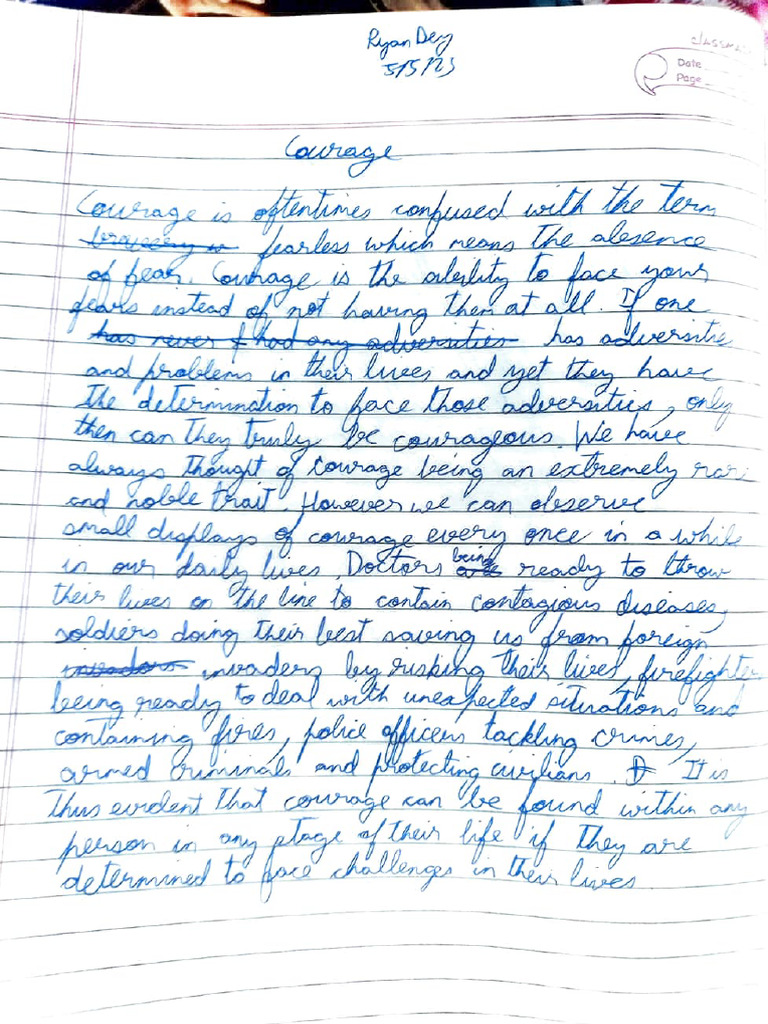 Ryan Dey
5/5/23
classma
Date
Page
Courage
Courage is oftentimes confused with the term
fearless which means the absence
of fear. Courage is the ability to face your
fears instead of not having them at all. If one
has never had any adversities has adversitie
and problems in their lives and yet they have
the determination to face those adversities, only
then can they truly be courageous. We have
always thought of courage being an extremely rare
and noble trait. However we can observe
small displays of courage every once in a while
in our daily lives. Doctors being ready to throw
their lives on the line to contain contagious diseases,
soldiers doing their best saving us from foreign
invaders by risking their lives, firefighter
being ready to deal with unexpected situations and
containing fires, police officers tackling crimes,
armed criminals and protecting civilians. It is
thus evident that courage can be found within any
person in any stage of their life if they are
determined to face challenges in their lives